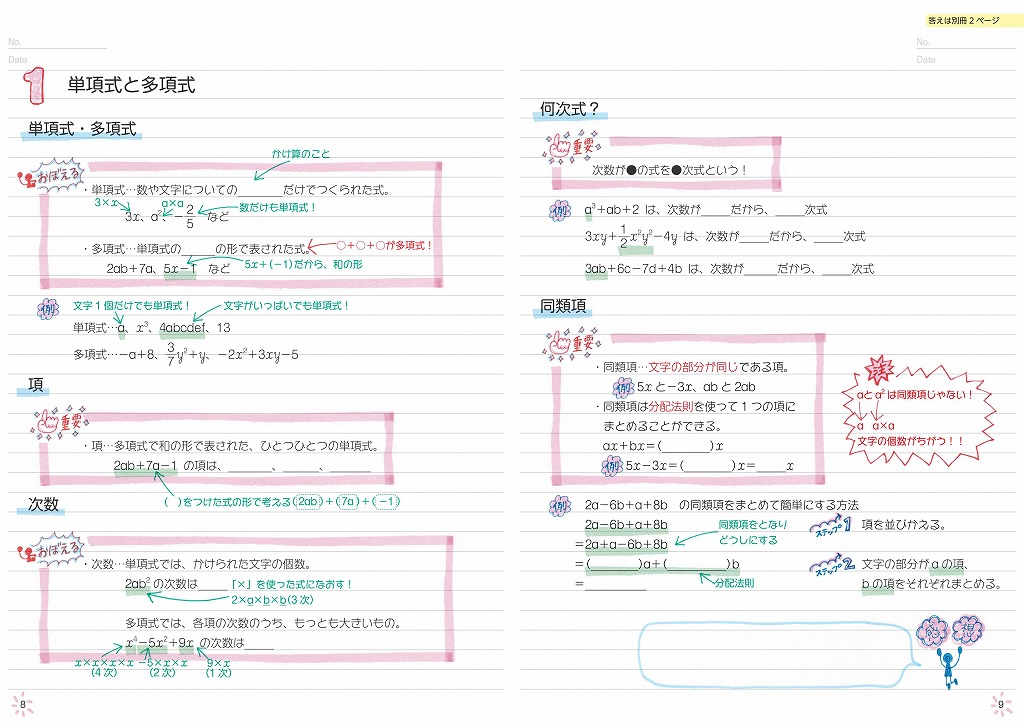 No.
Date
1 単項式と多項式
単項式・多項式
おぼえる
かけ算のこと
・単項式…数や文字についての______だけでつくられた式。
3×x a×a
3x、a²、−2/5 など 数だけも単項式！
・多項式…単項式の_____の形で表された式。 ○+○+○が多項式！
2ab+7a、5x−1 など 5x+(−1)だから、和の形
例 文字1個だけでも単項式！ 文字がいっぱいでも単項式！
単項式…a、x³、4abcdef、13
多項式…−a+8、3/7y²+y、−2x²+3xy−5
項
重要
・項…多項式で和の形で表された、ひとつひとつの単項式。
2ab+7a−1 の項は、______、______、______
( )をつけた式の形で考える(2ab)+(7a)+(−1)
次数
おぼえる
・次数…単項式では、かけられた文字の個数。
2ab²の次数は_____「×」を使った式になおす！
2×a×b×b(3次)
多項式では、各項の次数のうち、もっとも大きいもの。
x⁴−5x²+9x の次数は_____
x×x×x×x −5×x×x 9×x
(4次) (2次) (1次)
8
答えは別冊2ページ
No.
Date
何次式？
重要
次数が●の式を●次式という！
例 a³+ab+2 は、次数が_____だから、_____次式
3xy+1/2x²y²−4y は、次数が_____だから、_____次式
3ab+6c−7d+4b は、次数が_____だから、_____次式
同類項
重要
・同類項…文字の部分が同じである項。
例 5xと−3x、abと2ab
・同類項は分配法則を使って1つの項に
まとめることができる。
ax+bx=(________)x
例 5x−3x=(________)x=_____x
注意
aとa²は同類項じゃない！
a a×a
文字の個数がちがう！！
例 2a−6b+a+8b の同類項をまとめて簡単にする方法
2a−6b+a+8b
同類項をとなり
どうしにする
=2a+a−6b+8b
=(________)a+(__________)b
分配法則
=__________
ステップ1 項を並びかえる。
ステップ2 文字の部分がaの項、
bの項をそれぞれまとめる。
感想
9